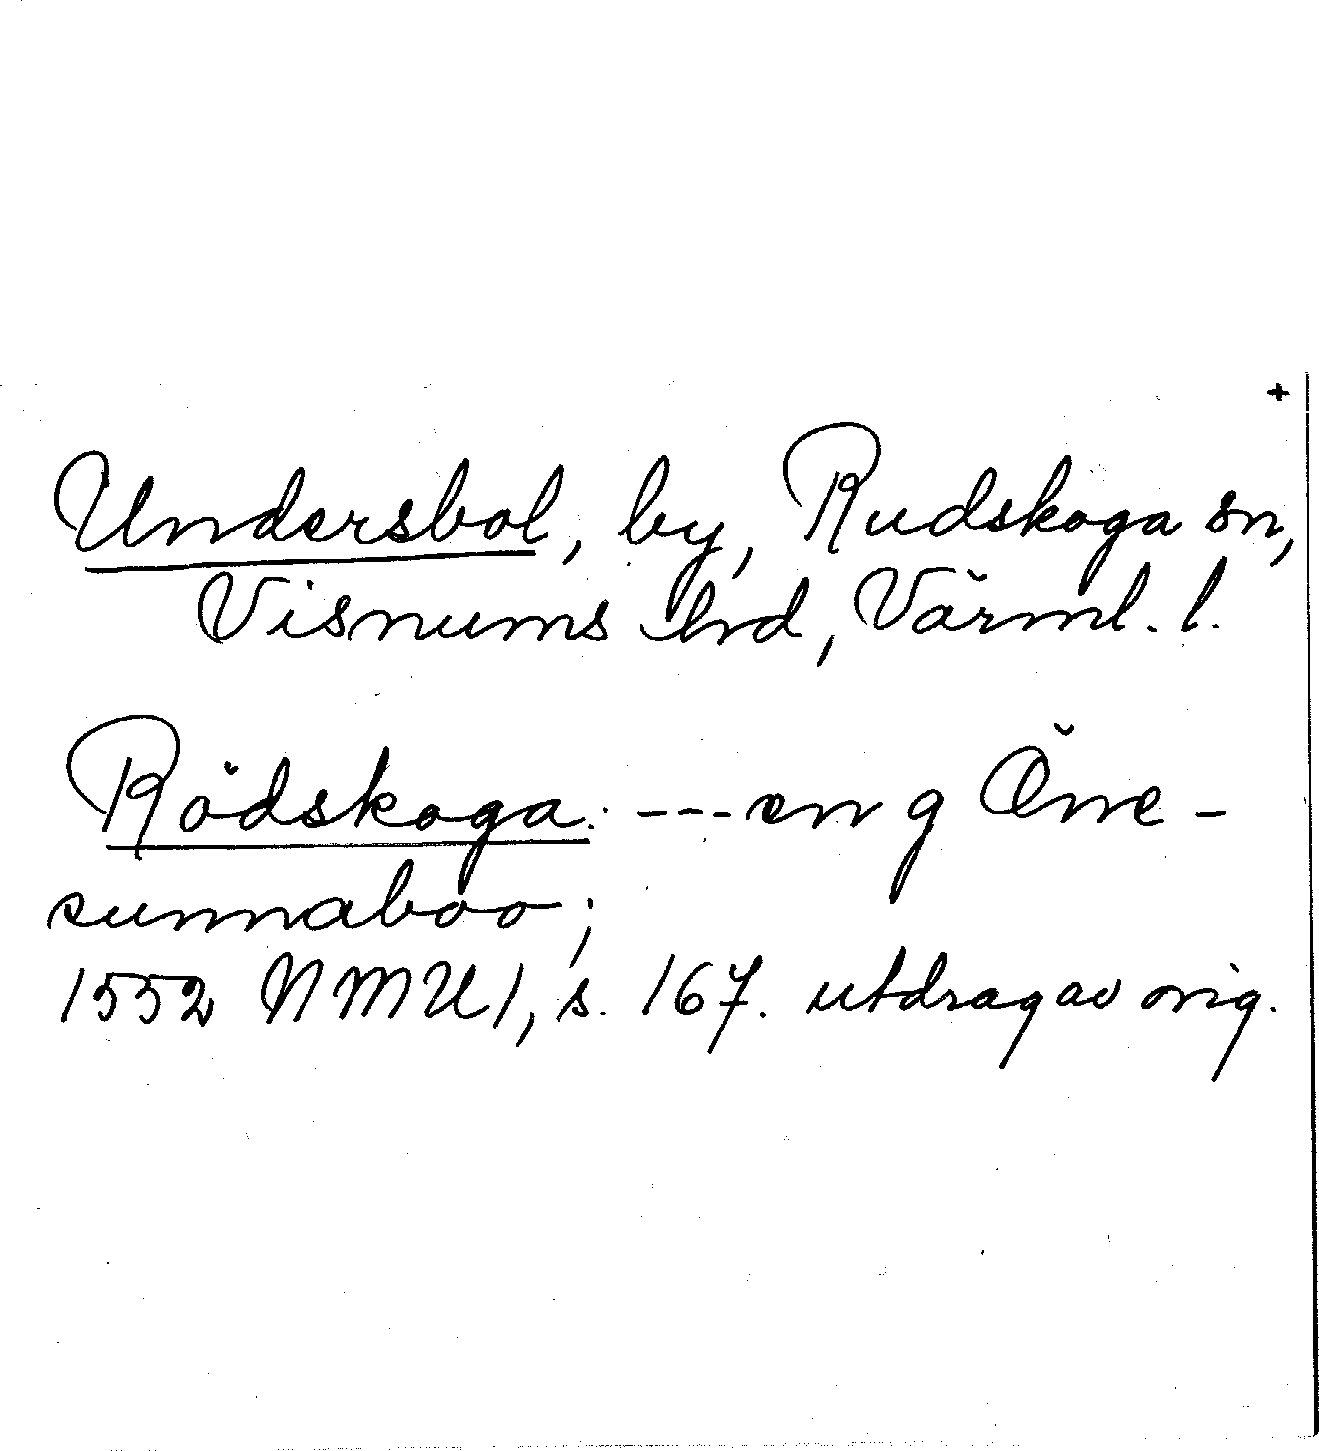 +
Undersbol, by, Rudskoga sn,
Visnums hrd, Värml. l.
Rödskoga: --- en g Öne-
sunnaboo;
1552 NMU 1, s. 167. utdrag av orig.